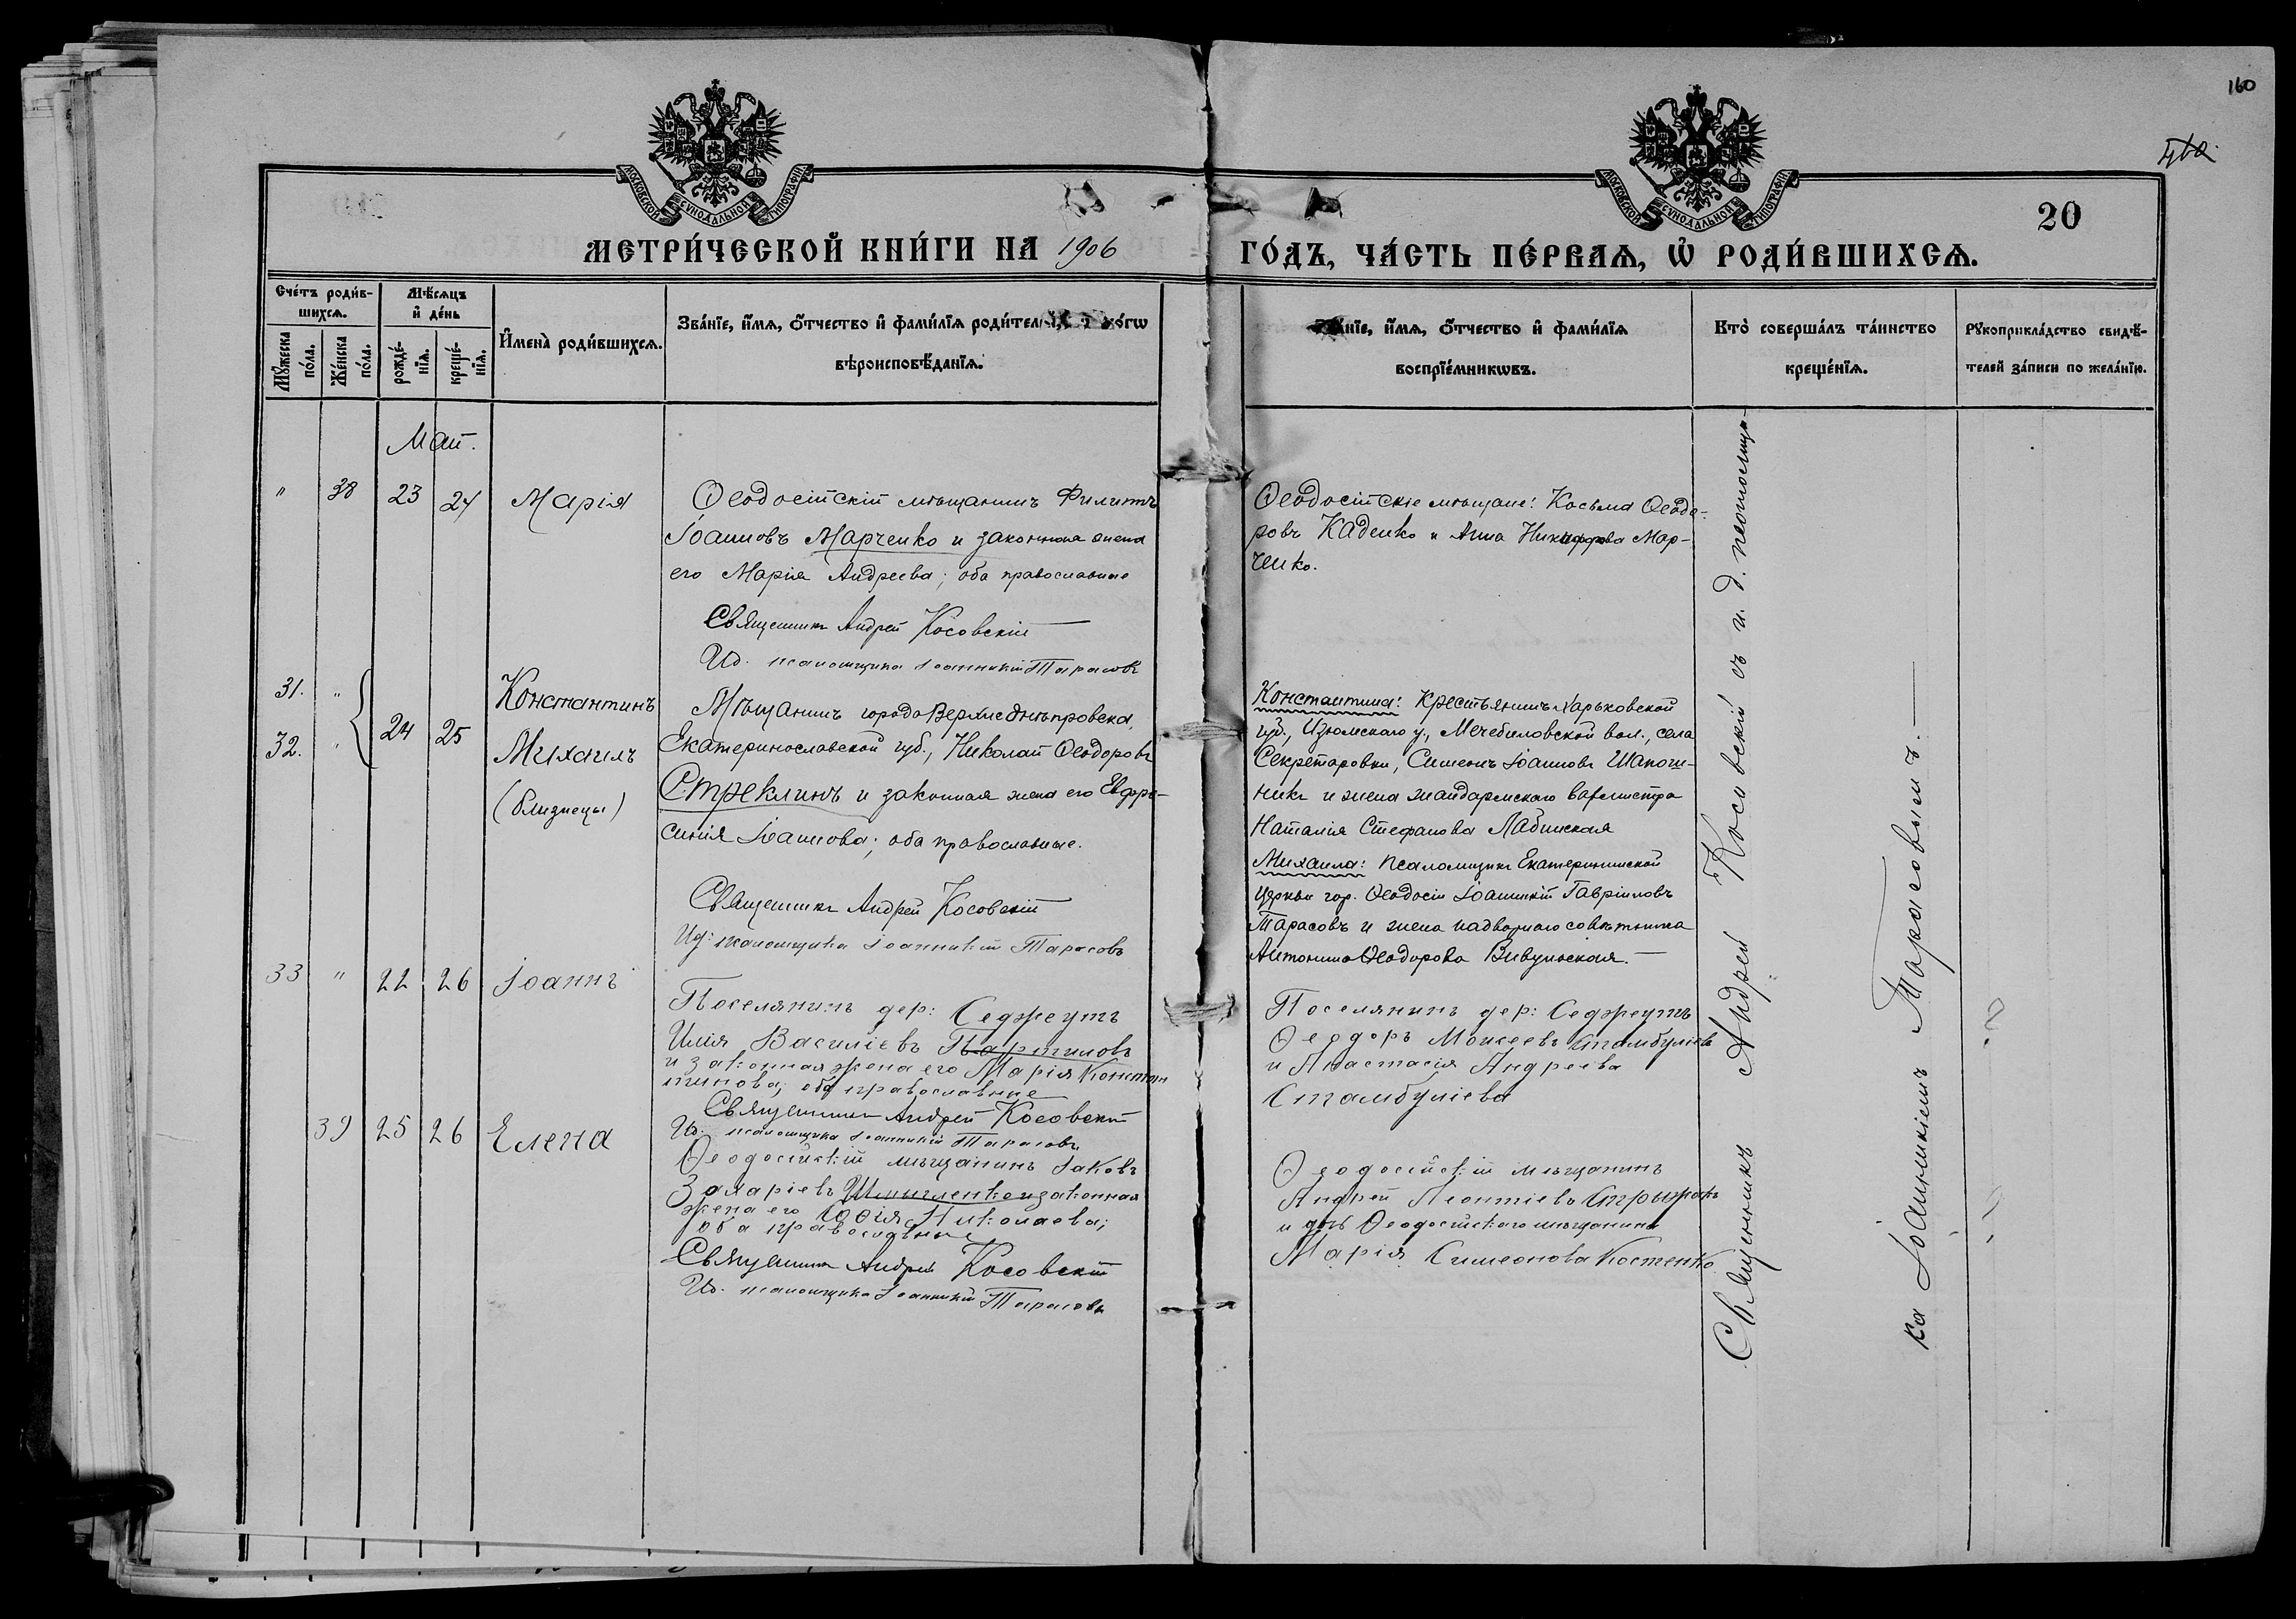 160
20
МОСКОВСКОЙ СѴНОДАЛЬНОЙ ТИПОГРАФІИ
МОСКОВСКОЙ СѴНОДАЛЬНОЙ ТИПОГРАФІИ
МЕТРИ́ЧЕСКОЙ КНИ́ГИ НА 1906
ГО́ДЪ, ЧА́СТЬ ПЕ́РВАѦ, Ѡ҆ РОДИ́ВШИХСѦ.
Сче́тъ роди́в-
шихсѧ.
Мꙋ́жеска по́ла.
Же́нска по́ла.
Мѣ́сѧцъ
и҆ де́нь
рожде́-
нїѧ.
креще́-
нїѧ.
И҆мена̀ роди́вшихсѧ.
Зва́нїе, и҆́мѧ, ѻ҆́тчество и҆ фамі́лїѧ роди́тел
вѣроисповѣ́данїѧ.
и҆́мѧ, ѻ҆́тчество и҆ фамі́лїѧ
воспрїе́мникѡвъ.
Кто̀ соверша́лъ та́инство
креще́нїѧ.
Рꙋкоприкла́дство свидѣ́-
телей за́писи по жела́нїю.
Май.
" 38 23 24 Марія
Ѳеодосійскій мѣщанинъ Филиппъ
Іоанновъ Марченко и законная жена
его Марія Андреева; оба православные
Священникъ Андрей Косовскій
Ид. псаломщика Іоанникій Тарасовъ
Ѳеодосійскіе мѣщане: Косьма Ѳеодо-
ровъ Каденко и Анна Никифорова Мар-
ченко.
31. "
32. "
24 25
Константинъ
Михаилъ
(близнецы)
Мѣщанинъ города Верхнеднѣпровска,
Екатеринославской губ., Николай Ѳеодоровъ
Стреклинъ и законная жена его Евфро-
синія Іоаннова; оба православные.
Священникъ Андрей Косовскій
Ид. псаломщика Іоанникій Тарасовъ
Константина: крестьянинъ Харьковской
губ., Изюмскаго у., Мечебиловской вол., села
Секретаровки, Симеонъ Іоанновъ Шапош-
никъ и жена жандармскаго вахмистра
Наталія Стефанова Лабинская
Михаила: псаломщикъ Екатерининской
церкви гор. Ѳеодосіи Іоанникій Гавріиловъ
Тарасовъ и жена надворнаго совѣтника
Антонина Ѳеодорова Вивульская.
33 " 22 26 Іоаннъ
Поселянинъ дер: Седжеутъ
Илія Василіевъ Партиловъ
и законная жена его Марія Констан
тинова; оба православные
Священникъ Андрей Косовскій
Ид. псаломщика Іоанникій Тарасовъ
Поселянинъ дер: Седжеутъ
Ѳеодоръ Моисеевъ Стамбуліевъ
и Анастасія Андреева
Стамбуліева
39 25 26 Елена
Ѳеодосійскій мѣщанинъ Іаковъ
Захаріевъ и законная
жена его Софія Николаева;
оба православные
Священникъ Андрей Косовскій
Ид. псаломщика Іоанникій Тарасовъ
Ѳеодосійскій мѣщанинъ
Андрей Леонтіевъ
и дочь Ѳеодосійскаго мѣщанина
Марія Симеонова Костенко
Священникъ Андрей Косовскій съ и. д. псаломщи-
ка Іоанникіемъ Тарасовымъ.